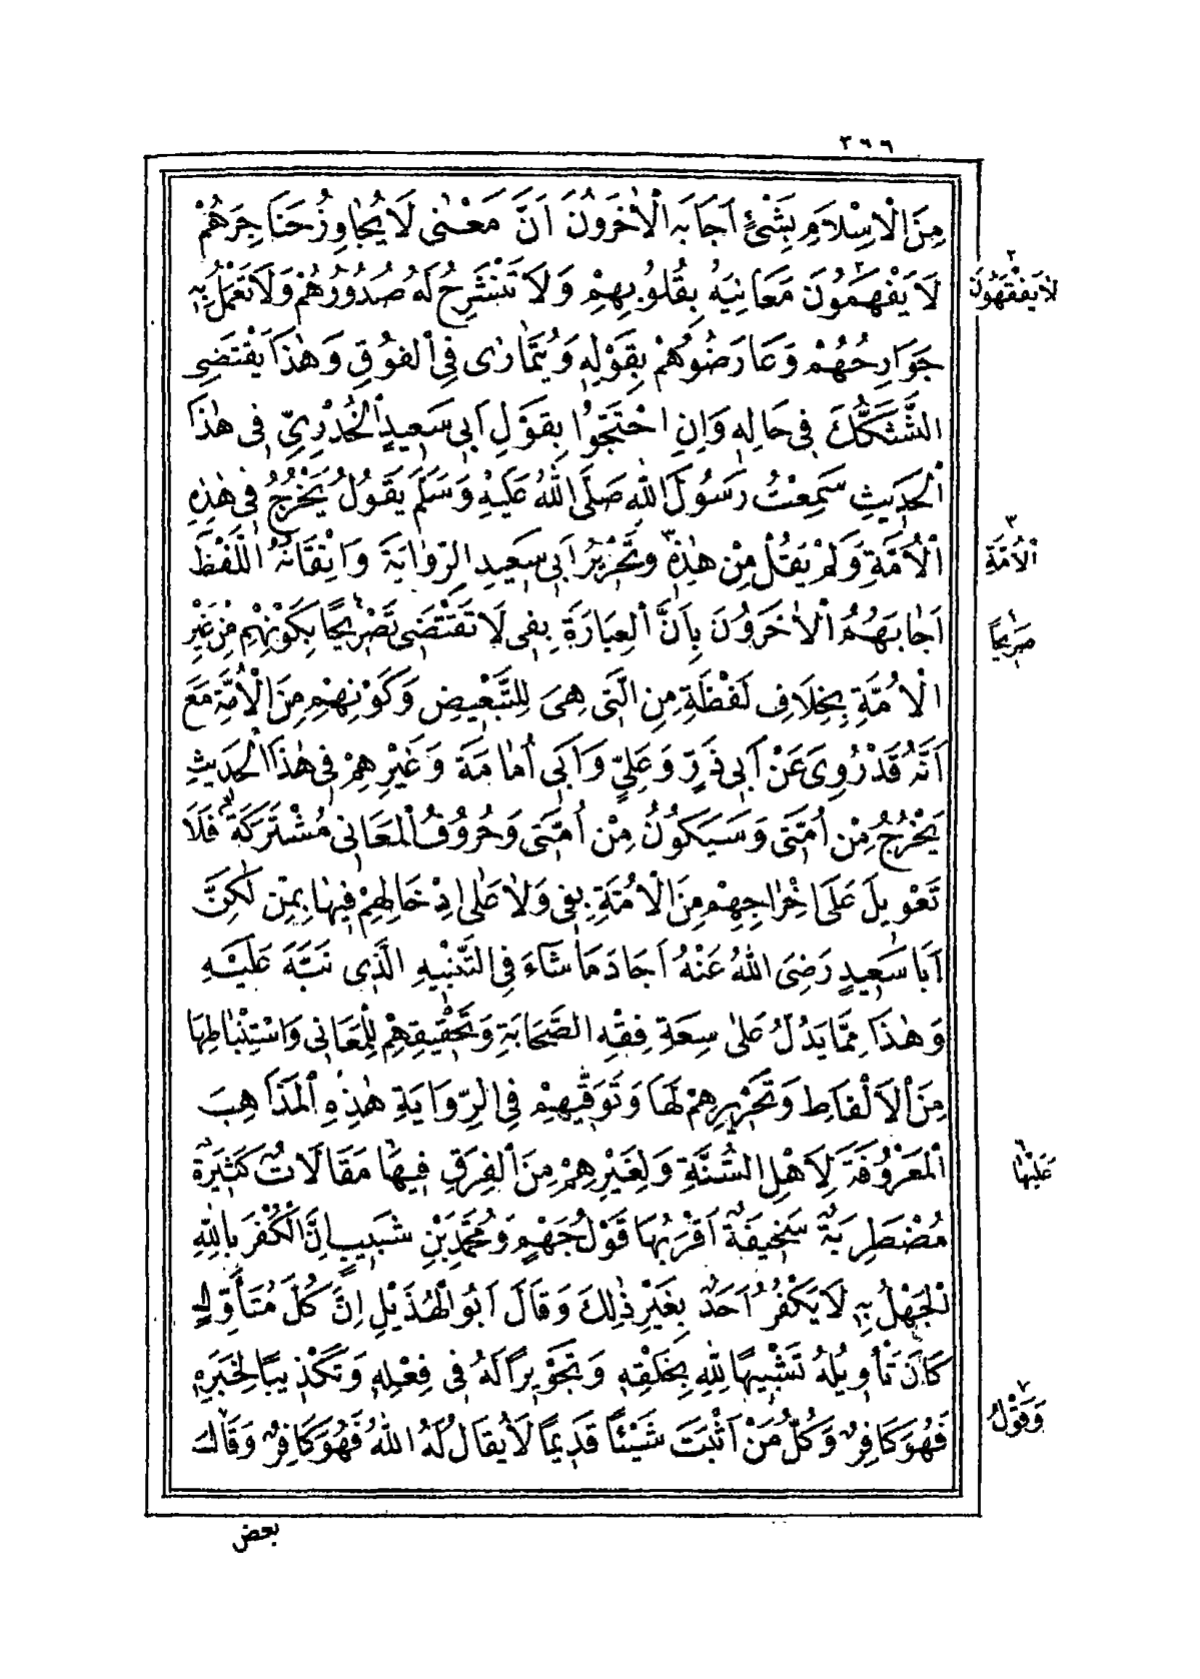 ٣٦٦
مِنَ الْاِسْلَامِ بِشَيْئٍ اَجَابَهُ الْاٰخَرُونَ اَنَّ مَعْنٰى لَا يُجَاوِزُ حَنَاجِرَهُمْ
لَا يَفْهَمُونَ مَعَانِيَهُ بِقُلُوبِهِمْ وَلَا تَنْشَرِحُ لَهُ صُدُورُهُمْ وَلَا تَعْمَلُ بِهِ
لَا يَفْقَهُونَ
جَوَارِحُهُمْ وَعَارَضُوهُمْ بِقَوْلِهِ وَيُتَمَارٰى فِى الْفُوقِ وَهٰذَا يَقْتَضِى
التَّشَكُّكَ فِى حَالِهِ وَاِنِ احْتَجُّوا بِقَوْلِ اَبِى سَعِيدٍ الْخُدْرِيِّ فِى هٰذَا
الْحَدِيثِ سَمِعْتُ رَسُولَ اللّٰهِ صَلَّى اللّٰهُ عَلَيْهِ وَسَلَّمَ يَقُولُ يَخْرُجُ فِى هٰذِهِ
الْاُمَّةِ وَلَمْ يَقُلْ مِنْ هٰذِهِ وَتَحْرِيرُ اَبِى سَعِيدٍ الرِّوَايَةَ وَاِتْقَانُهُ اللَّفْظَ
٣ الْاُمَّةِ
اَجَابَهُمُ الْاٰخَرُونَ بِاَنَّ الْعِبَارَةَ بِفِى لَا تَقْتَضِى تَصْرِيحًا بِكَوْنِهِمْ مِنْ غَيْرِ
صَرِيحًا
الْاُمَّةِ بِخِلَافِ لَفْظَةِ مِنِ الَّتِى هِىَ لِلتَّبْعِيضِ وَكَوْنِهِمْ مِنَ الْاُمَّةِ مَعَ
اَنَّهُ قَدْ رُوِىَ عَنْ اَبِى ذَرٍّ وَعَلِيٍّ وَاَبِى اُمَامَةَ وَغَيْرِهِمْ فِى هٰذَا الْحَدِيثِ
يَخْرُجُ مِنْ اُمَّتِى وَسَيَكُونُ مِنْ اُمَّتِى وَحُرُوفُ الْمَعَانِى مُشْتَرَكَةٌ فَلَا
تَعْوِيلَ عَلَى اِخْرَاجِهِمْ مِنَ الْاُمَّةِ بِفِى وَلَا عَلٰى اِدْخَالِهِمْ فِيهَا بِمِنْ لٰكِنَّ
اَبَا سَعِيدٍ رَضِىَ اللّٰهُ عَنْهُ اَجَادَ مَا شَاءَ فِى التَّنْبِيهِ الَّذِى نَبَّهَ عَلَيْهِ
وَهٰذَا مِمَّا يَدُلُّ عَلٰى سِعَةِ فِقْهِ الصَّحَابَةِ وَتَحْقِيقِهِمْ لِلْمَعَانِى وَاسْتِنْبَاطِهَا
مِنَ الْاَلْفَاظِ وَتَحْرِيرِهِمْ لَهَا وَتَوَقِّيهِمْ فِى الرِّوَايَةِ هٰذِهِ الْمَذَاهِبَ
الْمَعْرُوفَةَ لِاَهْلِ السُّنَّةِ وَلِغَيْرِهِمْ مِنَ الْفِرَقِ فِيهَا مَقَالَاتٌ كَثِيرَةٌ
عَلَيْهَا
مُضْطَرِبَةٌ سَخِيفَةٌ اَقْرَبُهَا قَوْلُ جَهْمٍ وَمُحَمَّدِ بْنِ شَبِيبٍ اِنَّ الْكُفْرَ بِاللّٰهِ
الْجَهْلُ بِهِ لَا يَكْفُرُ اَحَدٌ بِغَيْرِ ذٰلِكَ وَقَالَ اَبُو الْهُذَيْلِ اِنَّ كُلَّ مُتَأَوِّلٍ
كَانَ تَأْوِيلُهُ تَشْبِيهًا لِلّٰهِ بِخَلْقِهِ وَتَجْوِيرًا لَهُ فِى فِعْلِهِ وَتَكْذِيبًا لِخَبَرِهِ
فَهُوَ كَافِرٌ وَكُلُّ مَنْ اَثْبَتَ شَيْئًا قَدِيمًا لَا يُقَالُ لَهُ اللّٰهُ فَهُوَ كَافِرٌ وَقَالَ
وَقَوْلُ
بعض